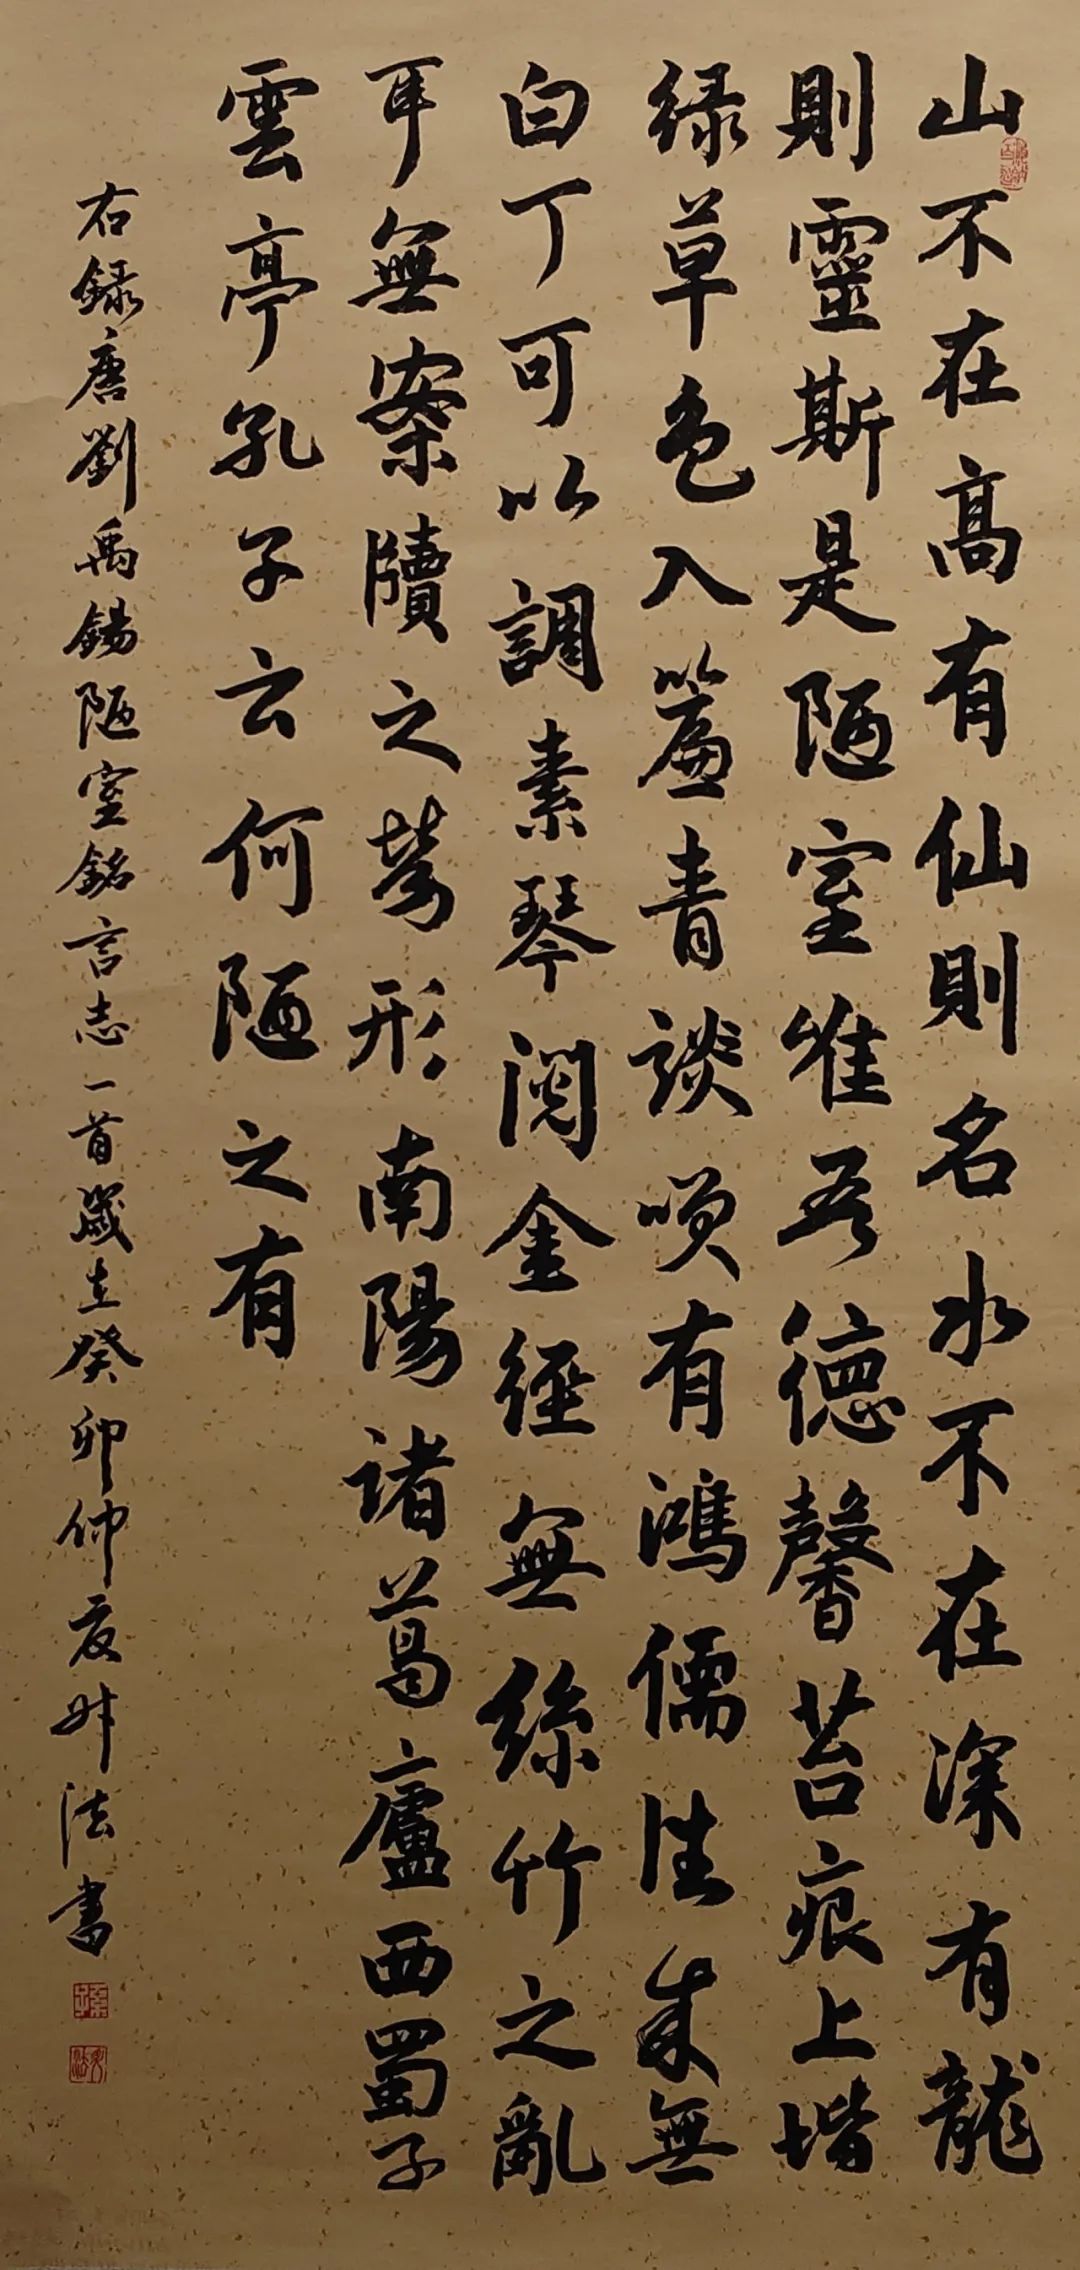 山不在高有仙則名水不在深有龍
則靈斯是陋室惟吾德馨苔痕上堦
緑草色入簾青談咲有鴻儒往來無
白丁可以調素琴閱金經無絲竹之亂
耳無案牘之勞形南陽諸葛廬西蜀子
雲亭孔子云何陋之有
右録唐劉禹錫陋室銘言志一首歲在癸卯仲夏法書